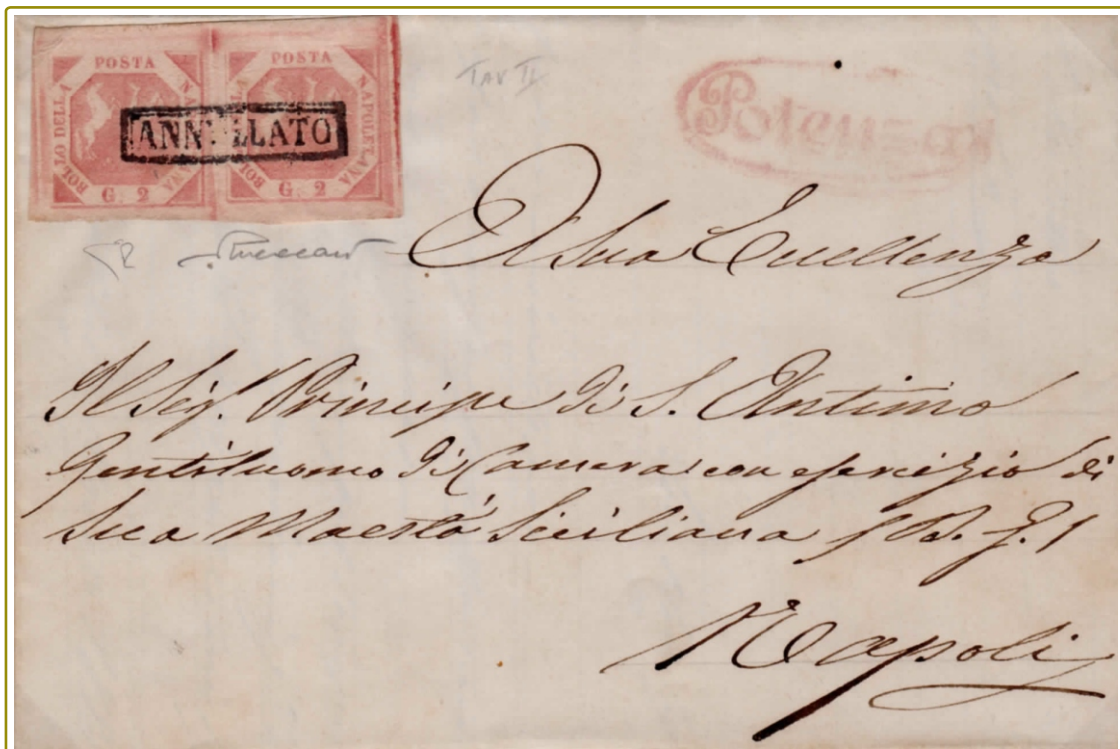 BOLLO DELLA POSTA NAPOLETANA
G. 2
BOLLO DELLA POSTA NAPOLETANA
G. 2
ANNULLATO
TAV II
Potenza
A Sua Eccellenza
Il Sig.r Principe di S. Antimo
Gentiluomo di Camera con esercizio di
Sua Maestà Siciliana
Napoli